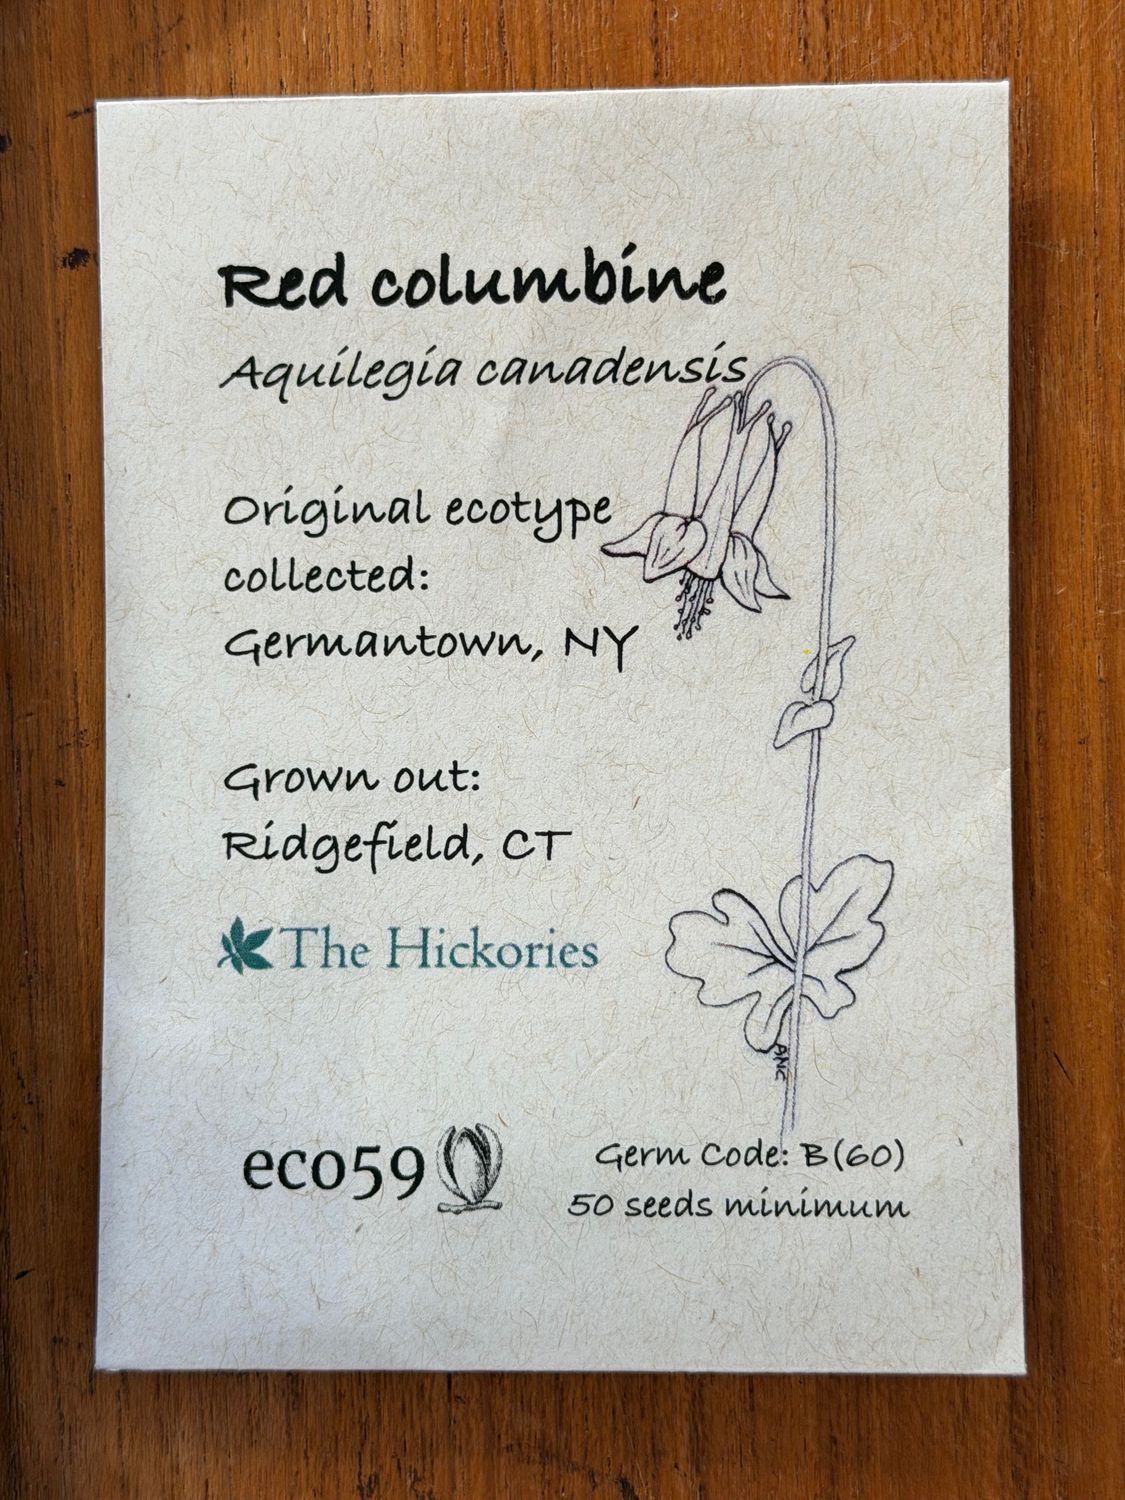 Red columbine
Aquilegia canadensis
Original ecotype
collected:
Germantown, NY
Grown out:
Ridgefield, CT
The Hickories
ANC
eco59
Germ Code: B(60)
50 seeds minimum